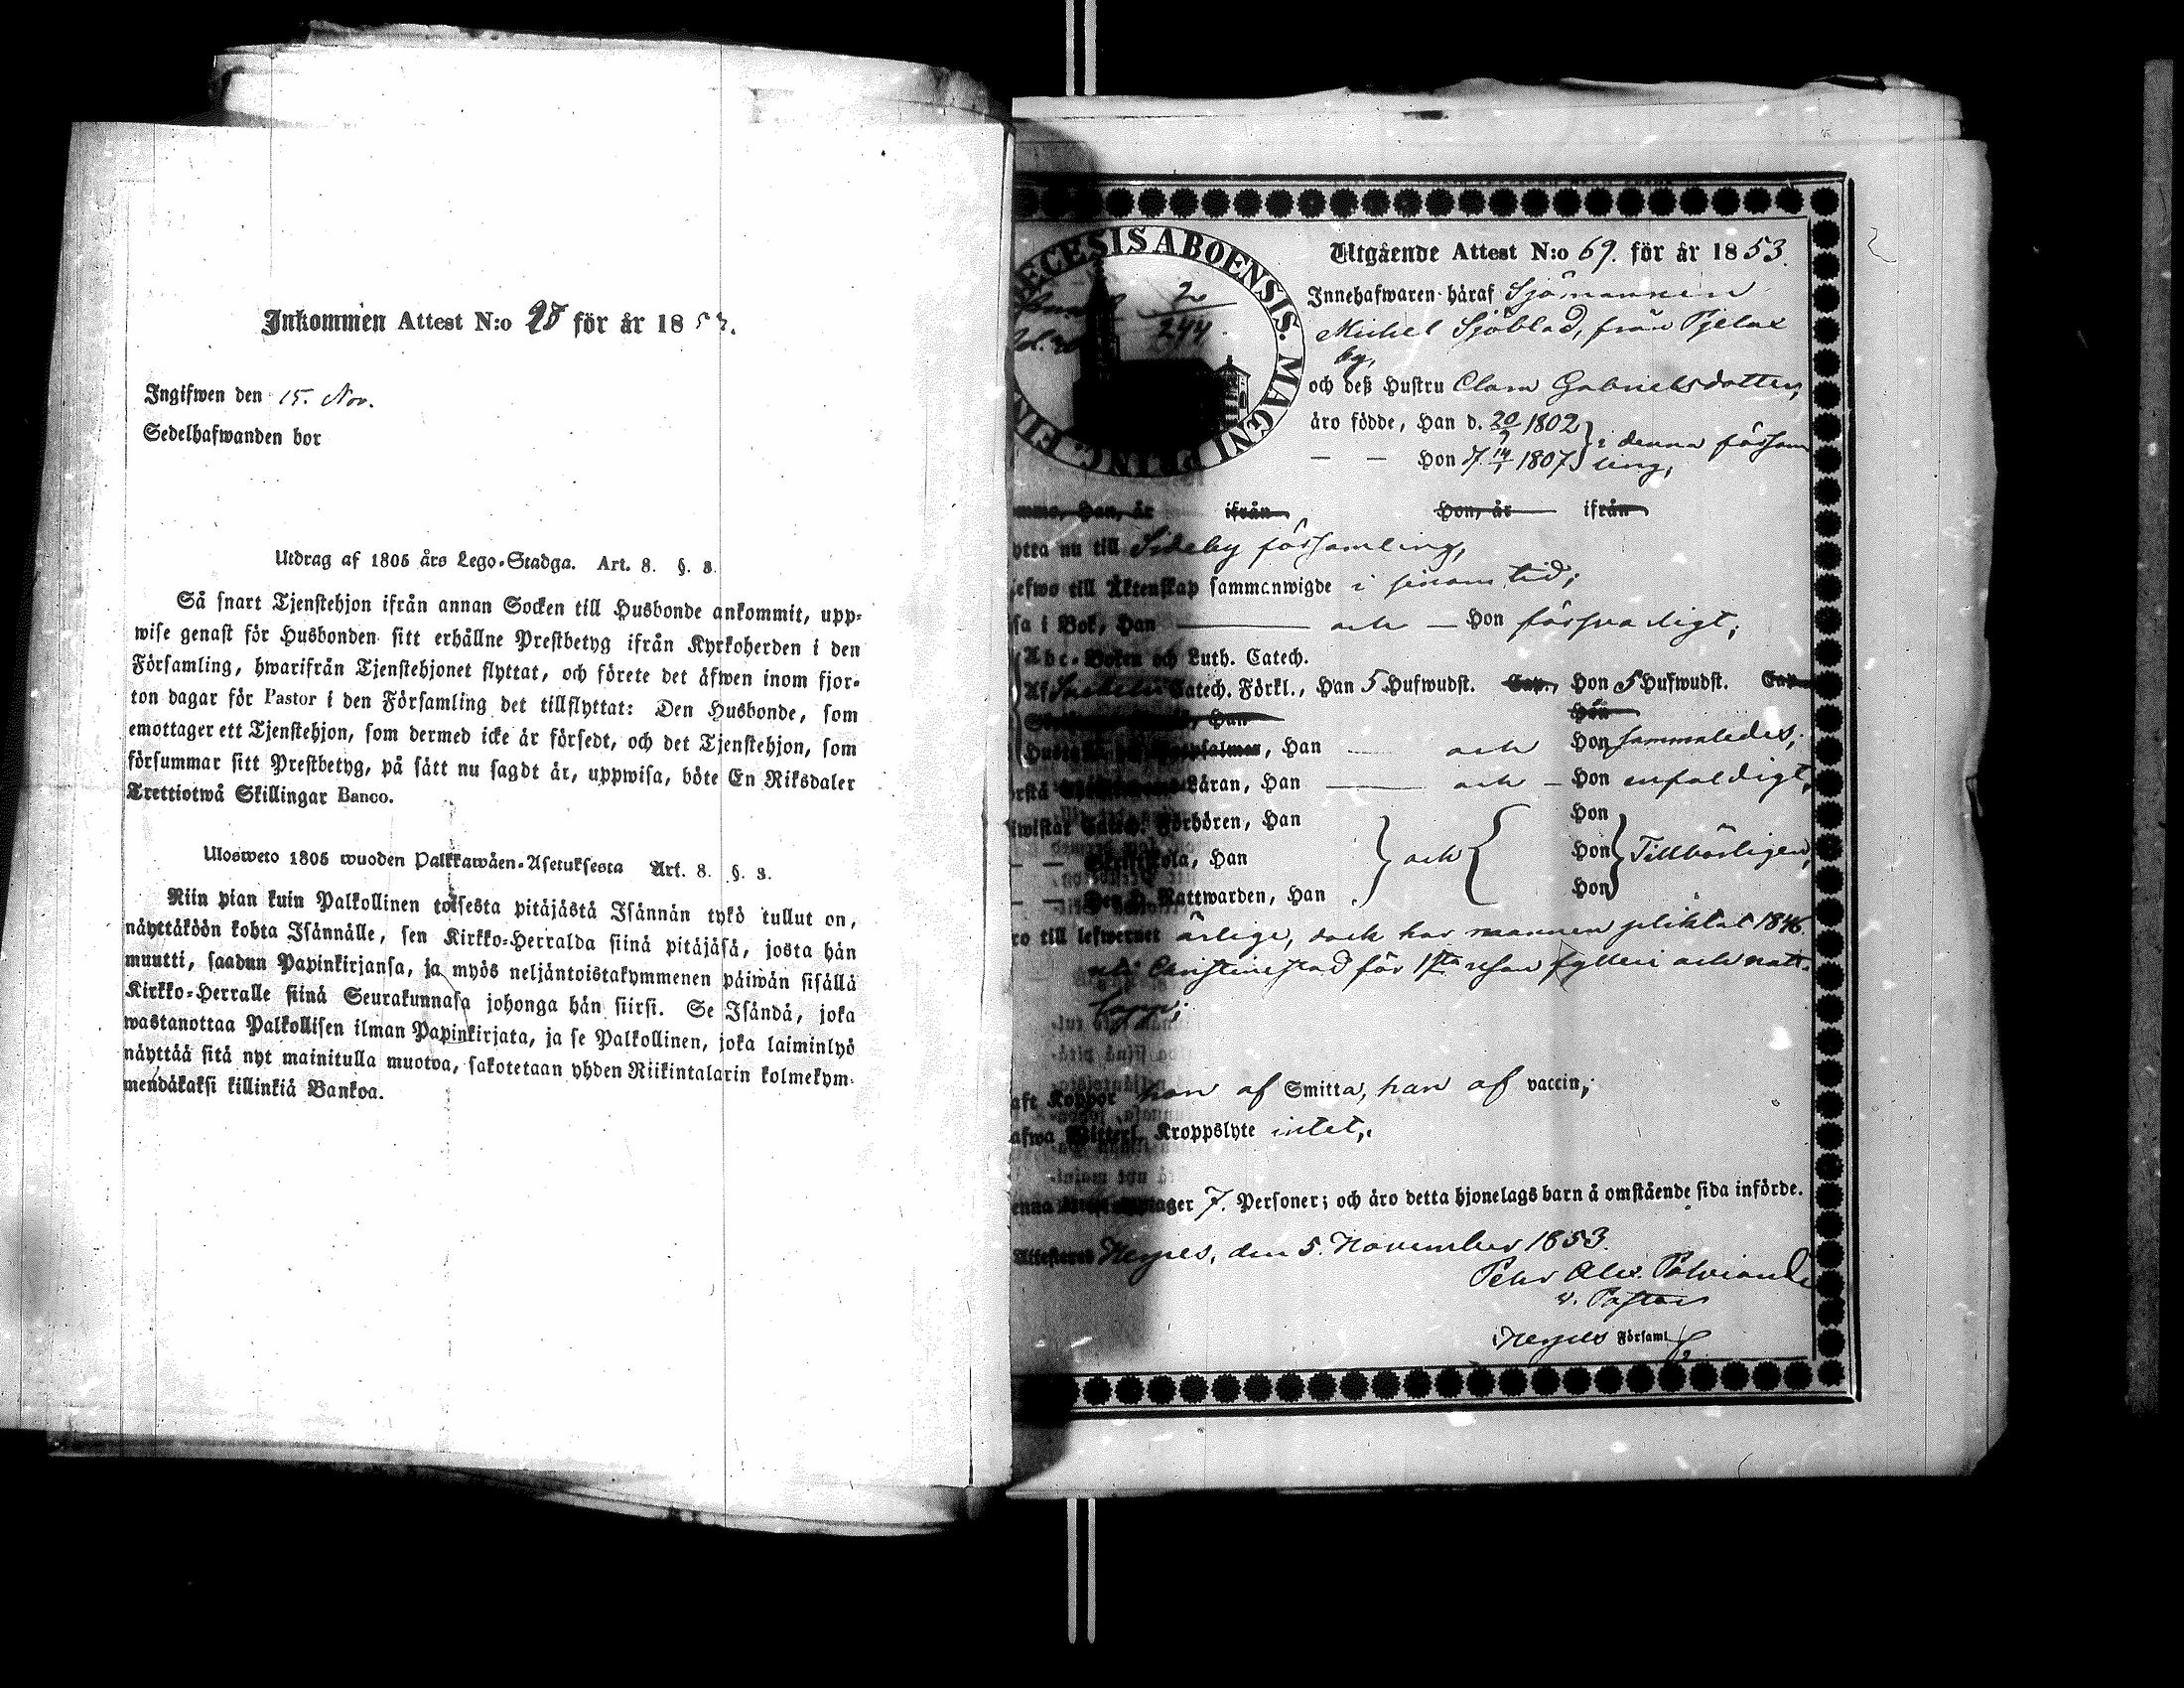 Inkommen Attest N:o 28 för år 1853.
Ingifwen den 15. Nov.
Sedelhafwanden bor
Utdrag af 1805 års Lego-Stadga. Art. 8. §. 3.
Så snart Tjenstehjon ifrån annan Socken till Husbonde ankommit, upp-
wise genast för Husbonden sitt erhållne Prestbetyg ifrån Kyrkoherden i den
Församling, hwarifrån Tjenstehjonet flyttat, och förete det äfwen inom fjor-
ton dagar för Pastor i den Församling det tillflyttat: Den Husbonde, som
emottager ett Tjenstehjon, som dermed icke är försedt, och det Tjenstehjon, som
försummar sitt Prestbetyg, på sätt nu sagdt är, uppwisa, böte En Riksdaler
Trettiotwå Skillingar Banco.
Ulosweto 1805 wuoden Palkkawäen-Asetuksesta Art. 8. §. 3.
Niin pian kuin Palkollinen toisesta pitäjästä Isännän tykö tullut on,
näyttäköön kohta Isännälle, sen Kirkko-Herralda siinä pitäjäsä, josta hän
muutti, saadun Papinkirjansa, ja myös neljäntoistakymmenen päiwän sisällä
Kirkko-Herralle siinä Seurakunnasa johonga hän siirsi. Se Isändä, joka
wastanottaa Palkollisen ilman Papinkirjata, ja se Palkollinen, joka laiminlyö
näyttää sitä nyt mainitulla muotoa, sakotetaan yhden Riikintalarin kolmekym-
mendäkaksi killinkiä Bankoa.
DIECESIS ABOENSIS. MAGNI PRINC. FIN
2
244
Utgående Attest N:o 69. för år 1853.
Innehafwaren häraf Sjömannen
Michel Sjöblad, från Pjelax
by,
och deß Hustru Clara Gabrielsdotter,
äro födde, Han d. 20/9 1802
— — Hon d. 14/1 1807 } i denna försam
ling,
Han, år ifrån Hon, år ifrån
nu till Sideby församling,
till Äktenskap sammanwigde i sinom tid;
i Bok, Han — och — Hon försvarligt;
Abc-Boken och Luth. Catech.
Af Catech. Förkl., Han 5 Hufwudst. Cap., Hon 5 Hufwudst. Cap.
Han Hon
Han — och Hon sammaledes;
Läran, Han — och — Hon enfaldigt,
Catech. Förhören, Han Hon
— — Han } och { Hon } Tillbörligen,
— — Den H. Nattwarden, Han Hon
till lefwernet ärlige, dock har mannen pliktat 1846
uti Christinestad för 1sta resan fylleri och natt-
Koppor hon af Smitta, han af vaccin;
Kroppslyte intet,
7. Personer; och äro detta hjonelags barn å omstående sida införde.
Attesteras Nerpes, den 5. November 1853.
Petter Alex.
v. Pastor
i Nerpes Församl.